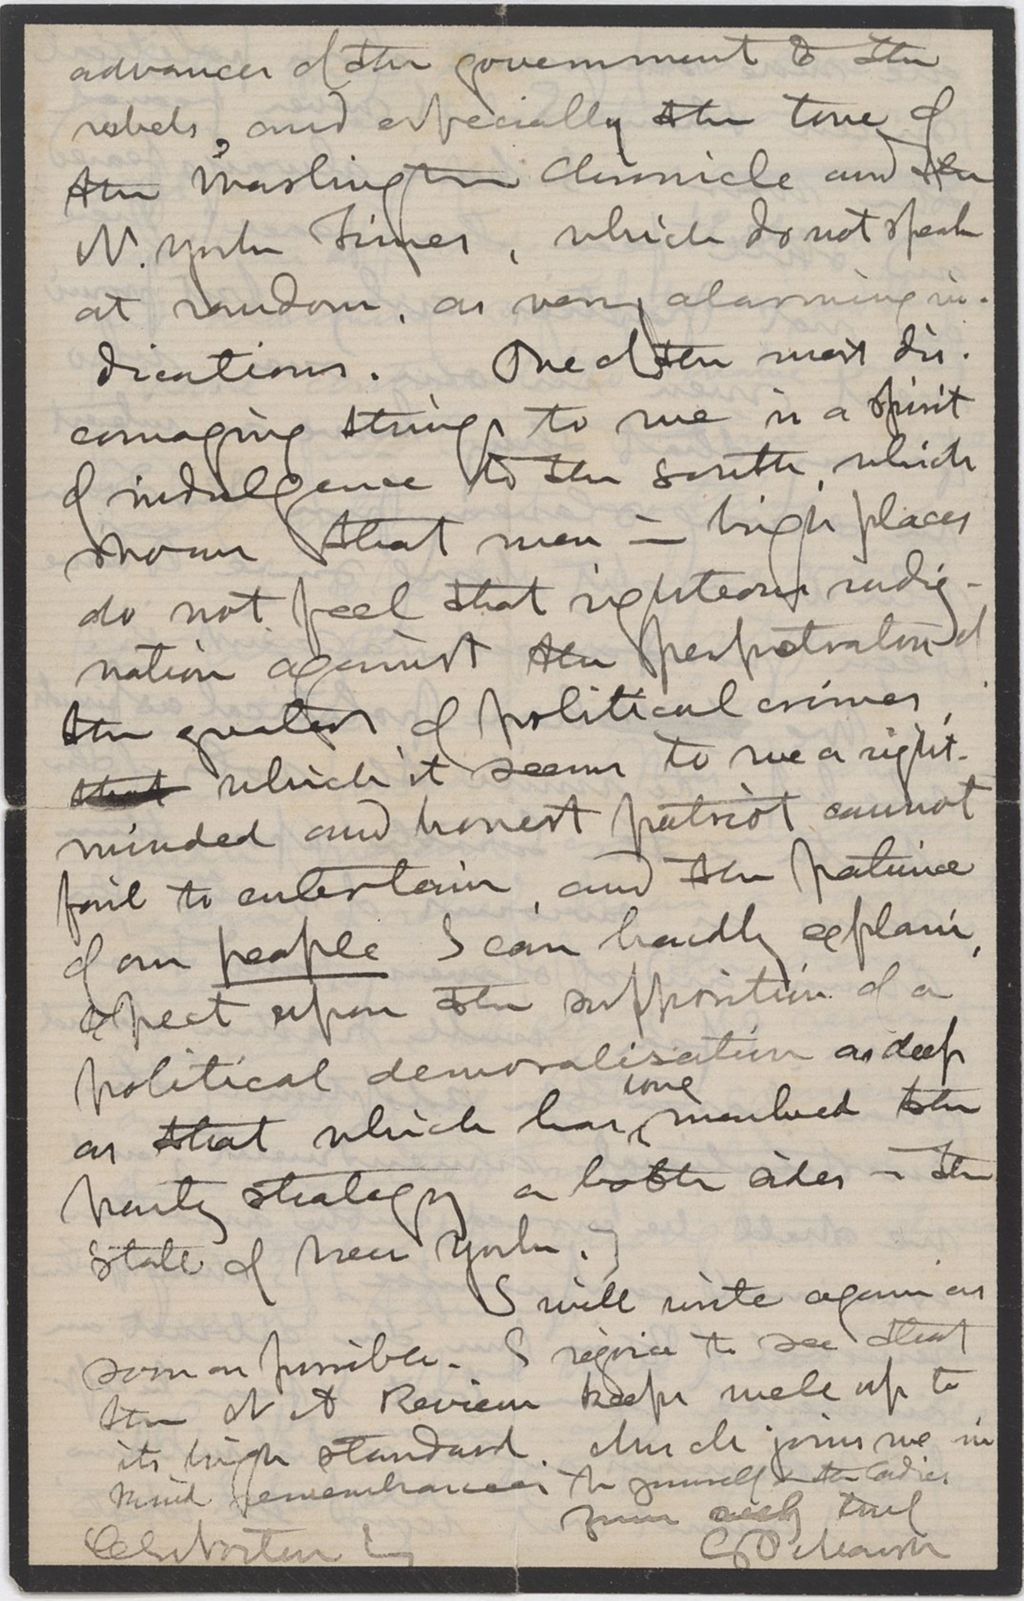 advances of the government to the
rebels, and especially the tone of
the Washington Chronicle and the
N. York Times, which do not speak
at random, as very alarming in-
dications. One of the most dis-
couraging things to me is a spirit
of indulgence to the South, which
shows that men in high places
do not feel that righteous indig-
nation against the perpetrators of
the greatest of political crimes,
that which it seems to me a right-
minded and honest patriot cannot
fail to entertain, and the patience
of our people I can hardly explain,
expect upon the supposition of a
political demoralisation as deep
as that which has long marked the
party strategy on both sides in the
State of New York.]
I will write again as
soon as possible. I rejoice to see that
the N A Review keeps well up to
its high standard. Mrs M joins me in
kind remembrances to yourself & the ladies
yours very truly
C E Norton Esq
G P Marsh